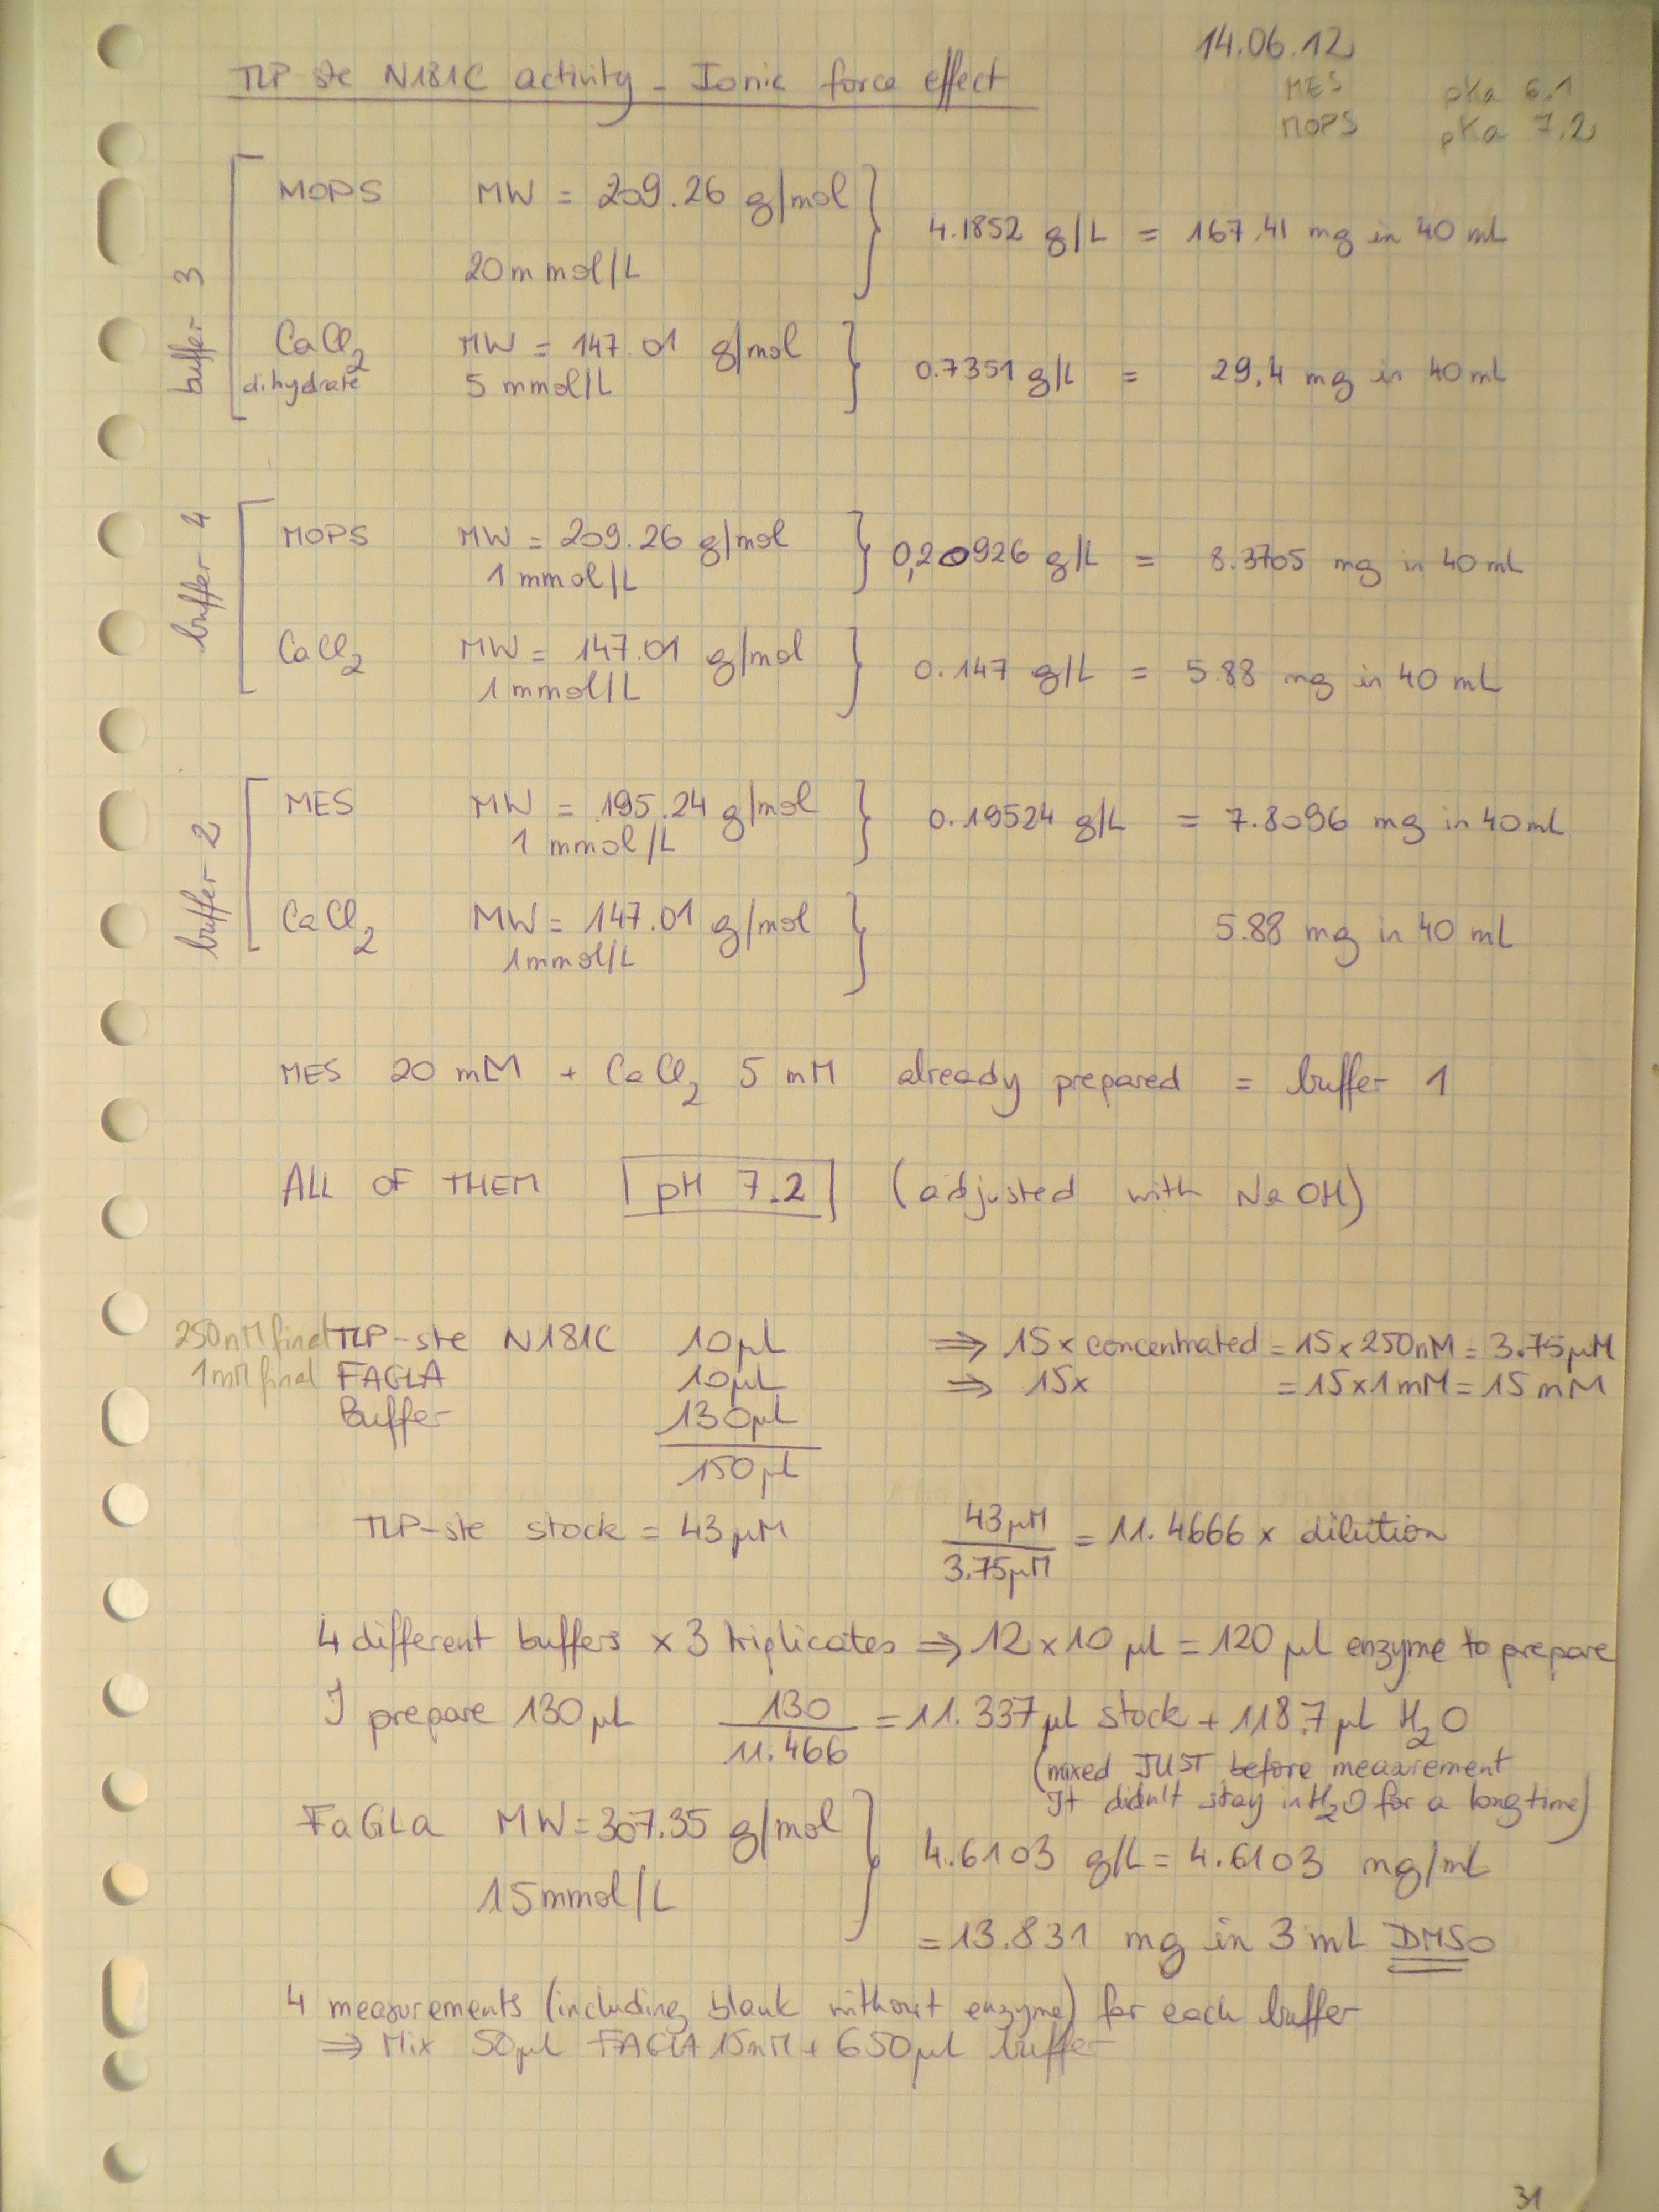 14.06.12
TLP-ste N181C activity - Ionic force effect
MES pKa 6.1
MOPS pKa 7.2
buffer 3
MOPS MW = 209.26 g/mol
4.1852 g/L = 167.41 mg in 40 mL
20 m mol/L
CaCl2 MW = 147.01 g/mol
dihydrate 5 mmol/L
0.7351 g/L = 29.4 mg in 40 mL
buffer 4
MOPS MW = 209.26 g/mol
1 mmol/L
0,20926 g/L = 8.3705 mg in 40 mL
CaCl2 MW = 147.01 g/mol
1 mmol/L
0.147 g/L = 5.88 mg in 40 mL
buffer 2
MES MW = 195.24 g/mol
1 mmol/L
0.19524 g/L = 7.8096 mg in 40 mL
CaCl2 MW = 147.01 g/mol
1 mmol/L
5.88 mg in 40 mL
MES 20 mM + CaCl2 5 mM already prepared = buffer 1
ALL OF THEM pH 7.2 (adjusted with NaOH)
250nM final TLP-ste N181C 10µL ⇒ 15x concentrated = 15 x 250nM = 3.75µM
1mM final FAGLA 10µL ⇒ 15x = 15 x 1 mM = 15 mM
Buffer 130µL
150µL
TLP-ste stock = 43 µM
43µM / 3.75µM = 11.4666 x dilution
4 different buffers x 3 triplicates ⇒ 12 x 10 µL = 120 µL enzyme to prepare
I prepare 130 µL 130 / 11.466 = 11.337µL stock + 118.7µL H2O
(mixed JUST before measurement
It didn't stay in H2O for a long time)
FaGLa MW = 307.35 g/mol
4.6103 g/L = 4.6103 mg/mL
15 mmol/L
= 13.831 mg in 3 mL DMSO
4 measurements (including blank without enzyme) for each buffer
⇒ Mix 50µL FAGLA 15mM + 650µL buffer
31